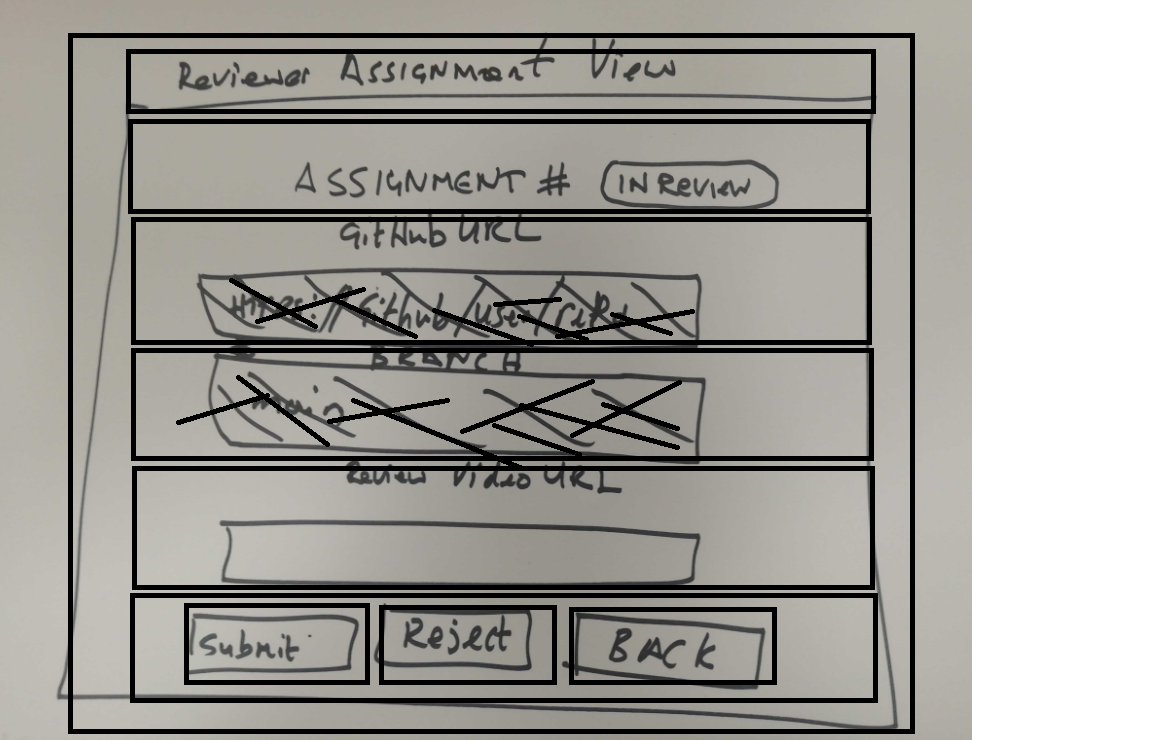 Reviewer ASSIGNMENT View
ASSIGNMENT # IN REVIEW
GitHub URL
Https://Github/user/repo
BRANCH
main
Review Video URL
Submit Reject BACK